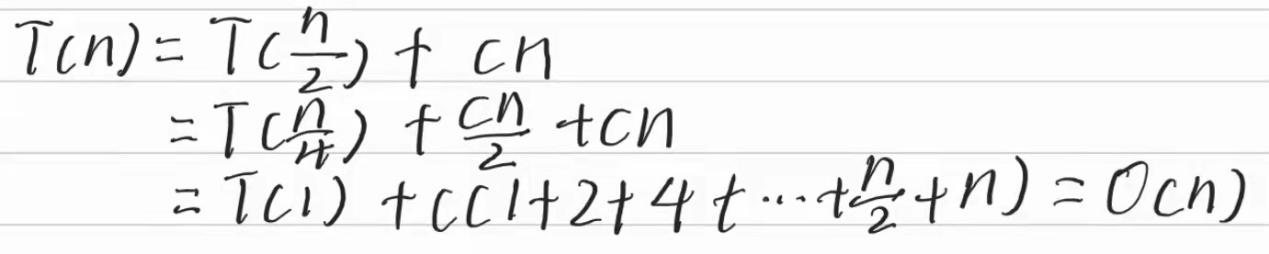 T(n) = T(n/2) + cn
= T(n/4) + cn/2 + cn
= T(1) + c(1+2+4+...+n/2+n) = O(n)